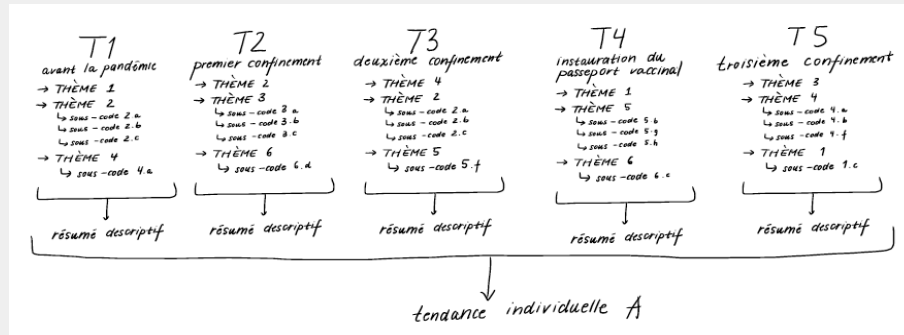 T1
avant la pandémie
→ THÈME 1
→ THÈME 2
↳ sous-code 2.a
↳ sous-code 2.b
↳ sous-code 2.c
→ THÈME 4
↳ sous-code 4.a
résumé descriptif
T2
premier confinement
→ THÈME 2
→ THÈME 3
↳ sous-code 3.a
↳ sous-code 3.b
↳ sous-code 3.c
→ THÈME 6
↳ sous-code 6.d
résumé descriptif
T3
deuxième confinement
→ THÈME 4
→ THÈME 2
↳ sous-code 2.a
↳ sous-code 2.b
↳ sous-code 2.c
→ THÈME 5
↳ sous-code 5.f
résumé descriptif
T4
instauration du
passeport vaccinal
→ THÈME 1
→ THÈME 5
↳ sous-code 5.b
↳ sous-code 5.g
↳ sous-code 5.h
→ THÈME 6
↳ sous-code 6.c
résumé descriptif
T5
troisième confinement
→ THÈME 3
→ THÈME 4
↳ sous-code 4.a
↳ sous-code 4.b
↳ sous-code 4.f
→ THÈME 1
↳ sous-code 1.c
résumé descriptif
tendance individuelle A